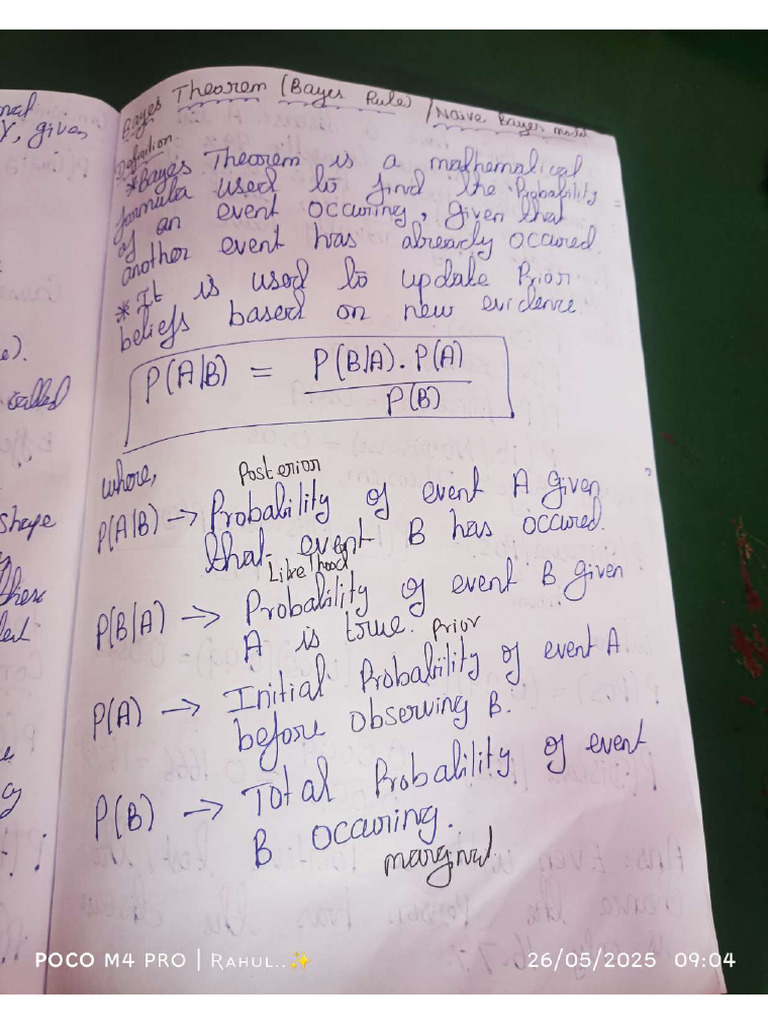 nal
y, given
e).
called
shape
Bayes Theorem (Bayes Rule) / Naive Bayes model
Definition
* Bayes Theorem is a mathematical
formula used to find the Probability
of an event occuring, given that
another event has already occured.
* It is used to update Prior
beliefs based on new evidence.
P(A|B) = P(B|A). P(A)
P(B)
where,
Posterior
P(A|B) → Probability of event A given
that event B has occured.
Likelhood
P(B|A) → Probability of event B given
A is true.
Prior
P(A) → Initial Probability of event A
before observing B.
P(B) → Total Probability of event
B occuring.
marginal
POCO M4 PRO | RAHUL..✨
26/05/2025 09:04